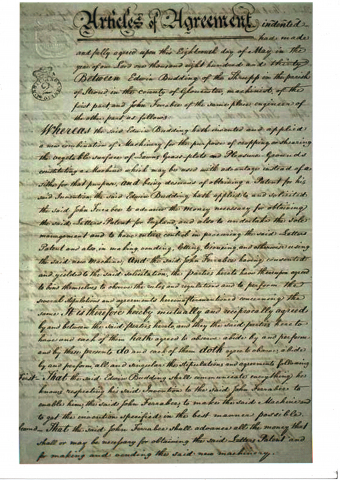 Articles of Agreement indented
had made
and fully agreed upon this Eighteenth day of May in the
year of our Lord one thousand eight hundred and thirty
Between Edwin Budding of the Thrupp in the parish
of Stroud in the county of Gloucester, machinist of the
first part and John Ferrabee of the same place engineer of
the other part as follows
Whereas the said Edwin Budding hath invented and applied
a new combination of Machinery for the purpose of cropping or shearing
the vegetable surface of Lawns Grass-plats and Pleasure-Grounds
constituting a Machine which may be used with advantage instead of a
sithe for that purpose, And being desirous of obtaining a Patent for his
said Invention the said Edwin Budding hath applied to and solicited
the said John Ferrabee to advance the money necessary for obtaining
the said Letters Patent for England and also to undertake the Sole
management and to have entire control in procuring the said Letters
Patent and also, in making, vending, letting, licensing and otherwise using
the said new machine, And the said John Ferrabee having consented
and yielded to the said solicitation, the parties hereto have thereupon agreed
to bind themselves to observe the rules and regulations and to perform the
several stipulations and agreements hereinafter mentioned concerning the
same. It is therefore hereby mutually and reciprocally agreed
by and between the said parties hereto, and they the said parties hereto
have and each of them hath agreed to observe abide by and perform
and by these presents do and each of them doth agree to observe, abide
by and perform, all and singular the stipulations and agreements following
First That the said Edwin Budding shall communicate every thing he
knows respecting his said Invention to the said John Ferrabee to
enable him, the said John Ferrabee, to make the said Machine and
to get the invention specified in the best manner possible
Second That the said John Ferrabee shall advance all the money that
shall or may be necessary for obtaining the said Letters Patent and
for making and vending this said new machinery.